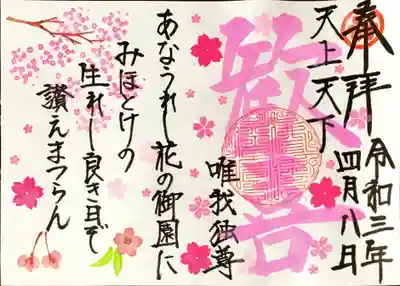 奉拝
令和三年
四月八日
天上天下
唯我独尊
歓喜
あなうれし花の御園に
みほとけの
生れし良き日ぞ
讃えまつらん